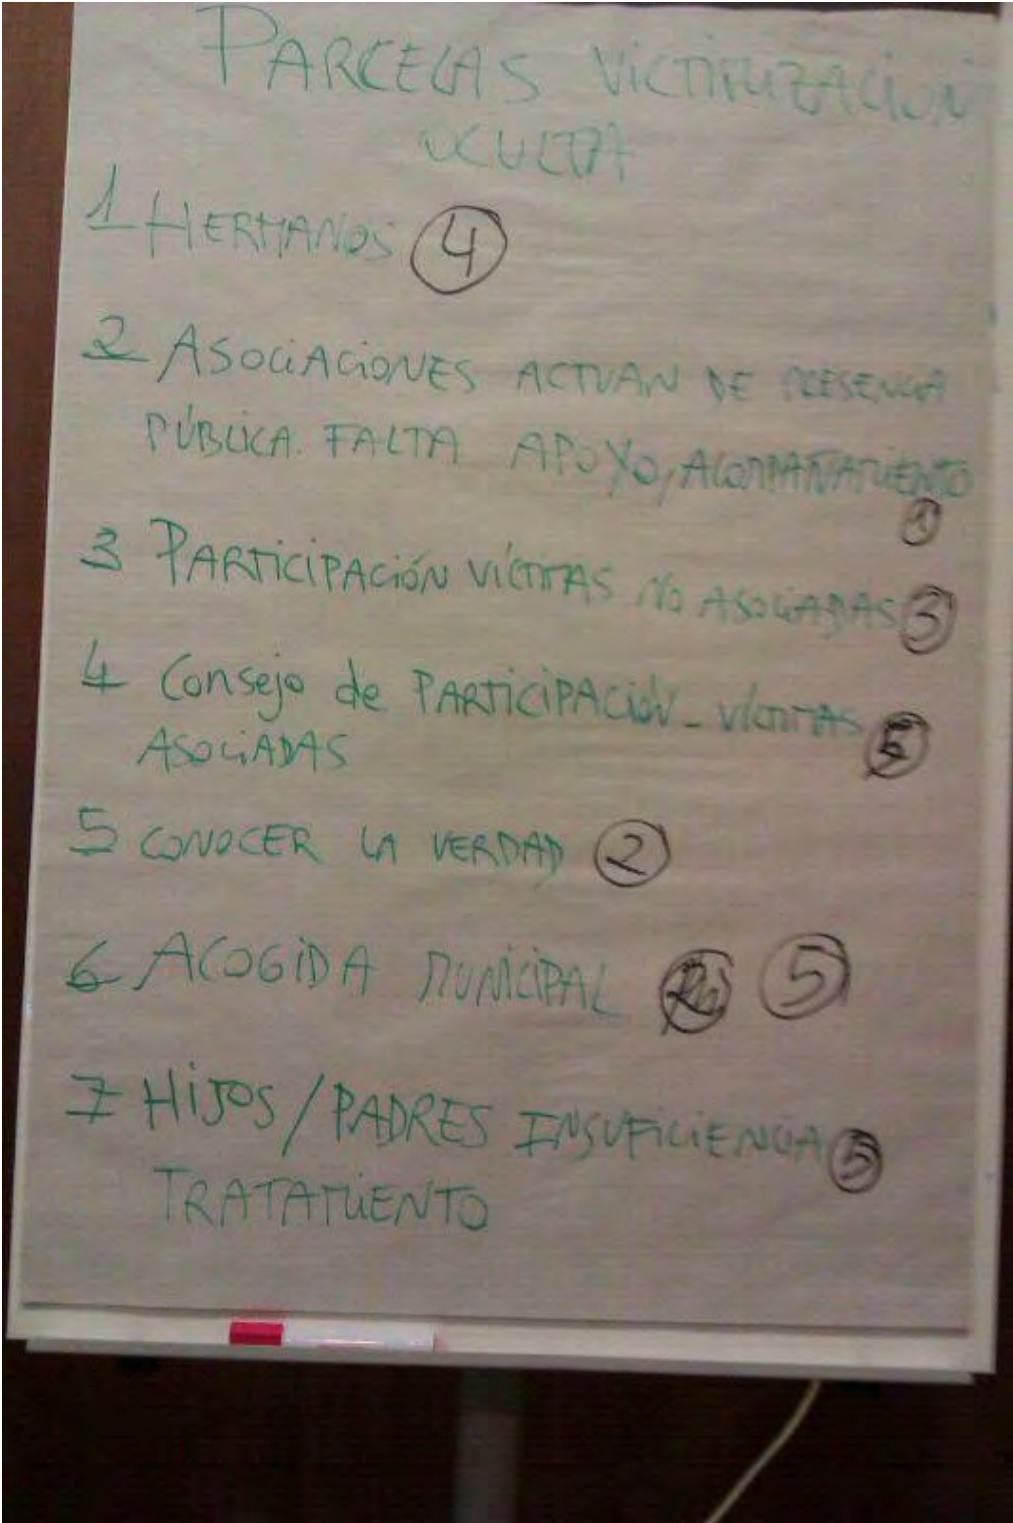 PARCELAS VICTIMIZACIÓN
OCULTA
1 HERMANOS 4
2 ASOCIACIONES ACTUAN DE PRESENCIA
PÚBLICA. FALTA APOYO, ACOMPAÑAMIENTO
1
3 PARTICIPACIÓN VÍCTIMAS NO ASOCIADAS 3
4 Consejo de PARTICIPACIÓN - VÍCTIMAS
ASOCIADAS
5 CONOCER LA VERDAD 2
6 ACOGIDA MUNICIPAL 5
7 HIJOS / PADRES INSUFICIENCIA 5
TRATAMIENTO